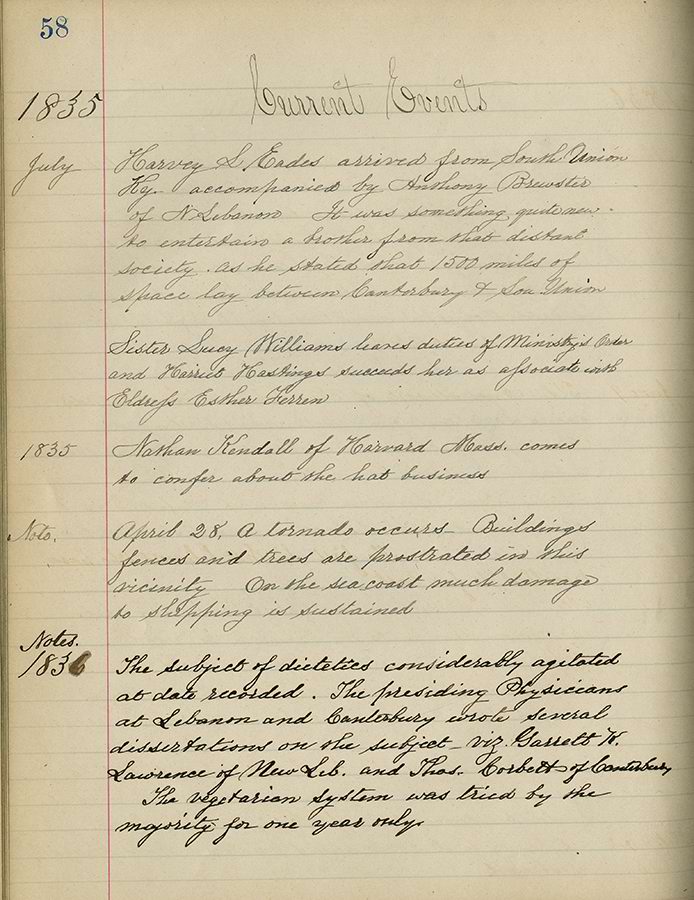 58
Current Events
1835
July Harvey L Eades arrived from South Union
Ky. accompanied by Anthony Brewster
of N Lebanon It was something quite new
to entertain a brother from that distant
society. As he stated that 1500 miles of
space lay between Canterbury & Sou Union
Sister Lucy Williams leaves duties of Ministry's Order
and Harriet Hastings succeeds her as associate with
Eldress Esther Ferren
1835 Nathan Kendall of Harvard Mass. comes
to confer about the hat business
Note. April 28, A tornado occurs Buildings
fences and trees are prostrated in this
vicinity On the sea coast much damage
to shipping is sustained
Notes.
1836 The subject of dietetics considerably agitated
at date recorded. The presiding Physicians
at Lebanon and Canterbury wrote several
dissertations on the subject - viz. Garrett K.
Lawrence of New Leb. and Thos. Corbett of Canterbury
The vegetarian system was tried by the
majority for one year only.